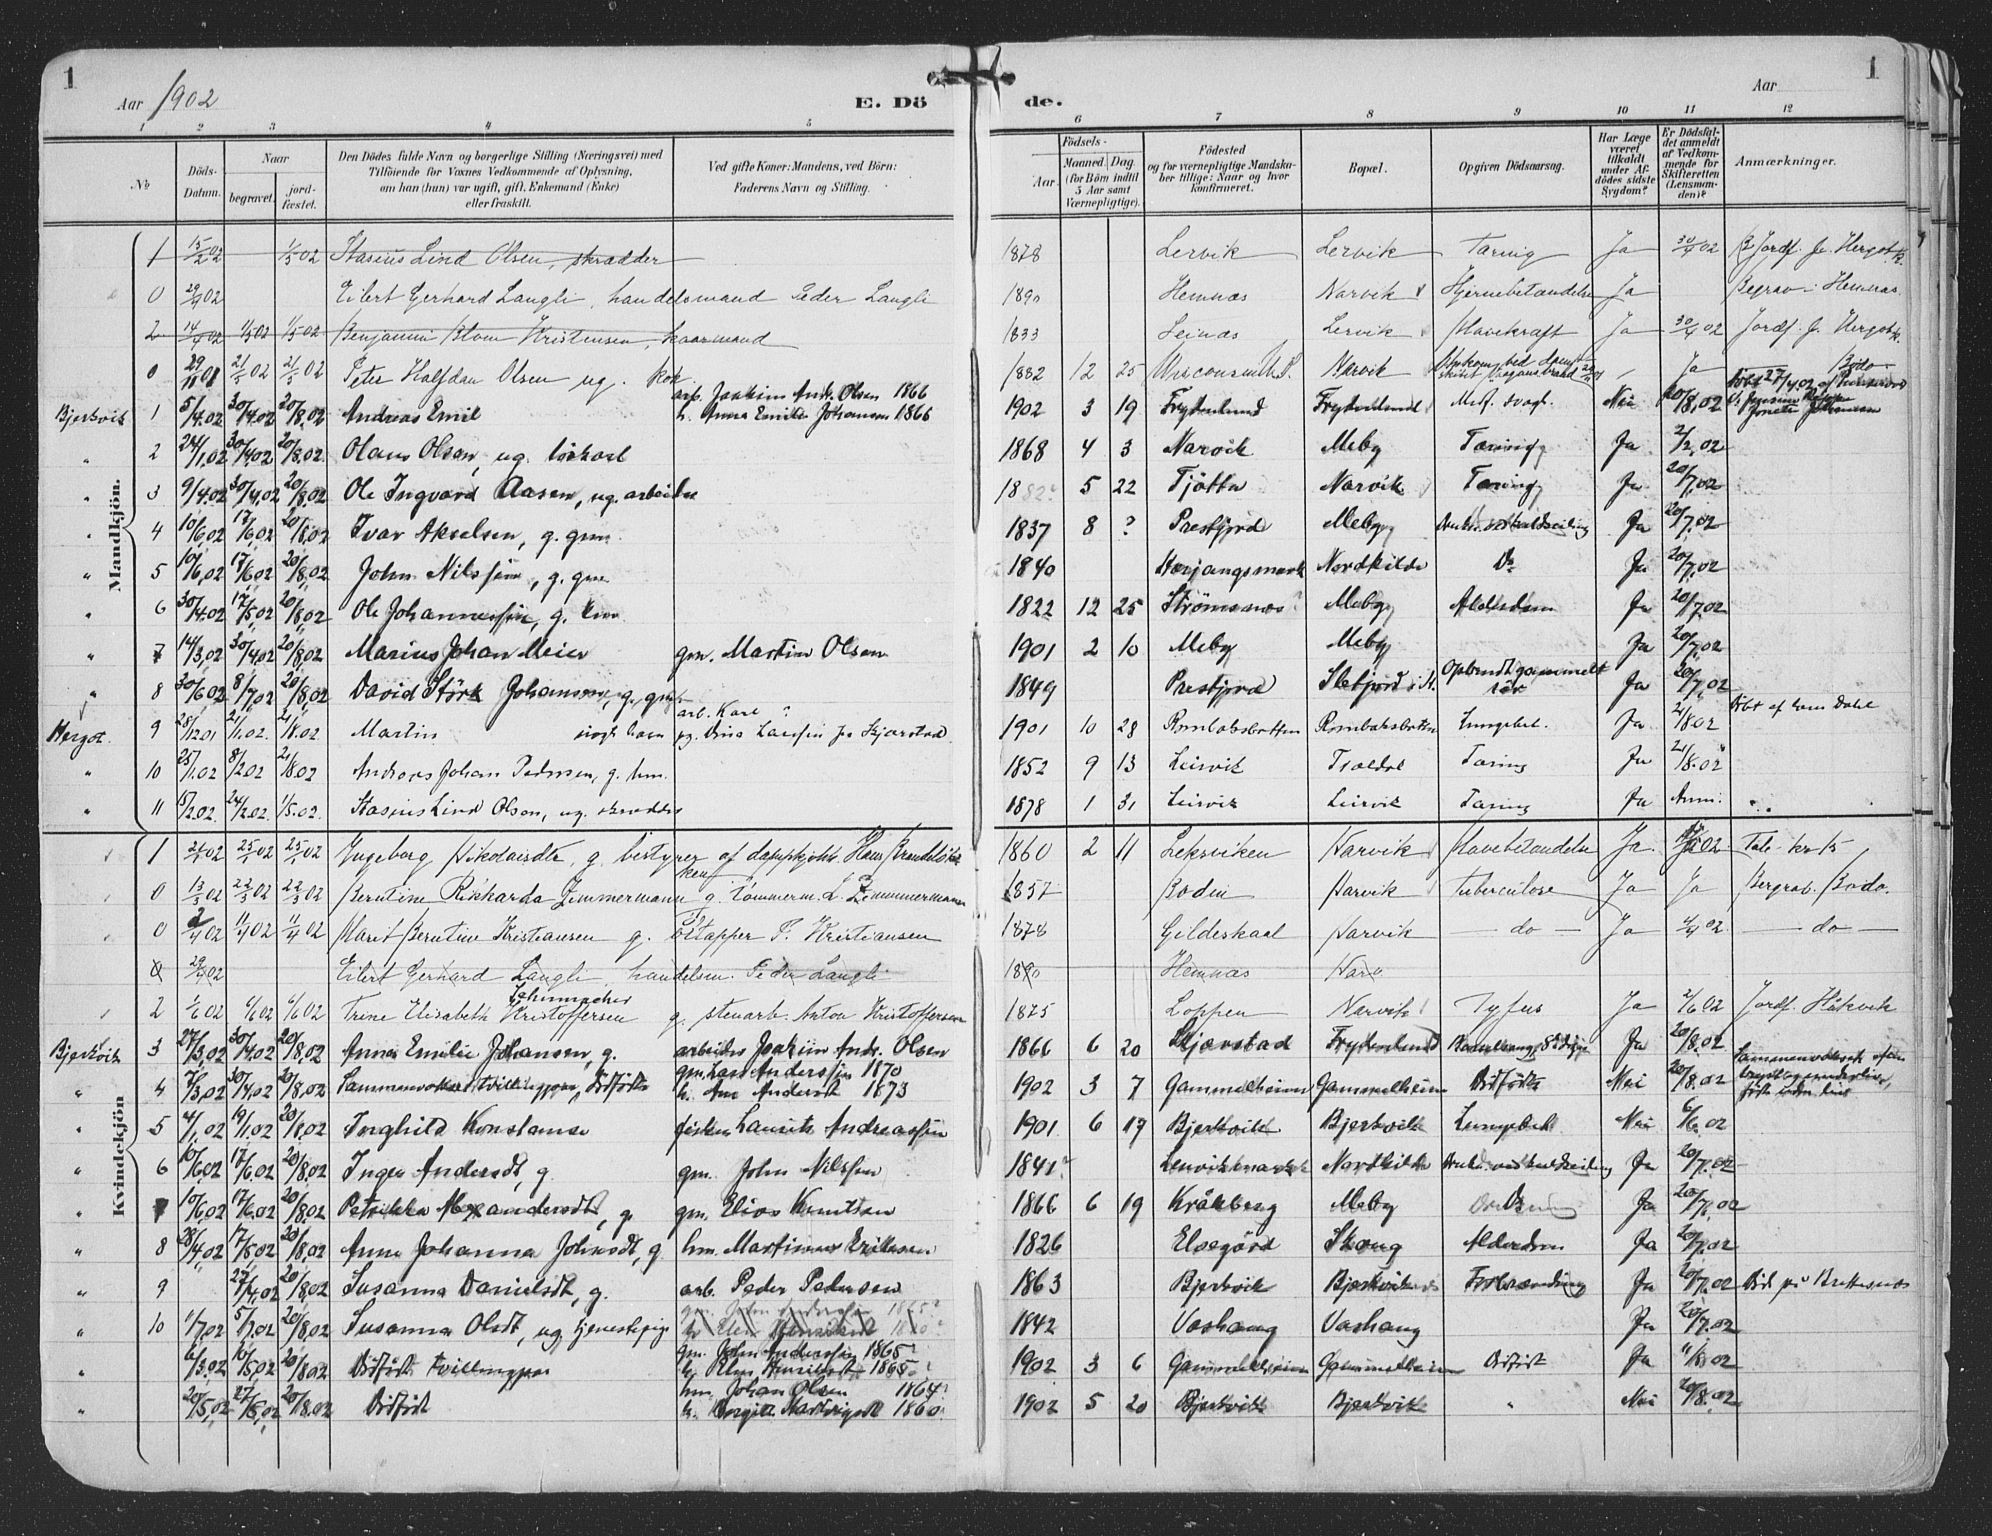 1
Aar 1902
E. Dö de.
Aar
1
1 2 3 4 5 6 7 8 9 10 11 12
No
Döds-Datum.
Naar
begravet.
jord-fæstet.
Den Dödes fulde Navn og borgerlige Stilling (Næringsvei) med Tilföiende for Voxnes Vedkommende af Oplysning, om han (hun) var ugift, gift, Enkemand (Enke) eller fraskilt.
Ved gifte Koner: Mandens, ved Börn: Faderens Navn og Stilling.
Födsels-
Aar.
Maaned. Dag.
(for Börn indtil 5 Aar samt Værnepligtige).
Födested og for værnepligtige Mandskaber tillige: Naar og hvor konfirmeret.
Bopæl.
Opgiven Dödsaarsag.
Har Læge været tilkaldt under Afdödes sidste Sygdom?
Er Dödsfaldet anmeldt af Vedkommende for Skifteretten (Lensmanden)?
Anmærkninger.
Mandkjön.
1 15/2 02 1/5 02 Stasius Lind Olsen, skrædder 1878 Lervik Lervik Tæring Ja 30/4 02 Jordf. Hergot k.
0 29/4 02 Eilert Gerhard Langli, handelsmand Peder Langli 1890 Hemnæs Narvik Hjernebetændelse Ja Begrav. i Hemnæs.
2 14/4 02 1/5 02 1/5 02 Benjamin Blom Kristensen, kaarmand 1833 Leinæs Lervik Mavekræft Ja 30/4 02 Jordf. Hergot k.
0 29/11 01 21/5 02 21/5 02 Peter Halfdan Olsen ug. kok 1882 12 25 Narvik Ja Bodö
Bjerkvik 1 5/4.02 30/4.02 20/8.02 Andreas Emil arb. Joakim Andr. Olsen 1866 h. Anna Emilie Johansen 1866 1902 3 19 Frydenlund Frydenlund Medf. svagh. Nei 20/8.02
" 2 24/1.02 30/4.02 20/8.02 Olaus Olsen, ug. löskarl 1868 4 3 Narvik Meby Tæring Ja 2/2.02
" 3 9/4.02 30/4.02 20/8.02 Ole Ingvard Aasen, ug. arbeider 1882? 5 22 Tjøtta Narvik Tæring Ja 20/7.02
" 4 10/6.02 17/6.02 20/8.02 Ivar Akselsen, g. gm. 1837 8 ? Presfjord Meby Druknet ved kuldseiling Ja 20/7.02
" 5 10/6.02 17/6.02 20/8.02 John Nilssen, g. gm. 1840 Herjangsmark Nordkilde Do Ja 20/7.02
" 6 30/4.02 17/5.02 20/8.02 Ole Johannessen, g. 1822 12 25 Strømsnes? Meby Alderdom Ja 20/7.02
" 7 14/3.02 30/4.02 20/8.02 Marius Johan Meier gm. Martin Olsen 1901 2 10 Meby Meby Ja 20/7.02
" 8 30/6.02 8/7.02 20/8.02 David Störk Johansen, g. gm. 1849 Presfjord Ja 20/7.02
Hergot. 9 28/12.01 21/1.02. 21/8.02 Martin uægte barn arb. Karl ? pg. Dina Larssen fra Skjærstad 1901 10 28 Rombaksbotten Rombaksbotten Lungebet. Ja 21/8.02
" 10 25/1.02 8/2.02 21/8.02 Andreas Johan Pedersen, g. hm. 1852 9 13 Leirvik Trældal Tæring Ja 21/8.02
" 11 15/2.02. 24/2.02. 1/5.02. Stasius Lind Olsen, ug. skrædder 1878 1 31 Leirvik Leirvik Tæring Ja Anm.
Kvindekjön
1 02 25/1 02 25/1 02 Ingeborg Nikolaisdtr, g. bestyrer af dampkjökkenet Hans 1860 2 11 Leksviken Narvik Mavebetændelse Ja
0 13/3 02 22/3 02 22/3 02 Berntine Rikharda Zimmermann g. tömmerm. L. Zimmermann 1857 Bodin Narvik Tuberculose Ja Ja Begrav. Bodö.
0 2/4 02 11/4 02 11/4 02 Marit Berntine Kristiansen g. öltapper P. Kristiansen 1878 Gildeskaal Narvik — do — Ja 4/4 02 — do —
0 29/4 02 Eilert Gerhard Langli handelsm. Peder Langli 1890 Hemnæs Narv
2 1/6 02 6/6 02 6/6 02 Trine Elisabeth Schumacher Kristoffersen g. stenarb. Anton Kristoffersen 1875 Loppen Narvik Tyfus Ja 2/6 02 Jordf. Håkvik
Bjerkvik 3 27/3.02 30/4.02 20/8.02 Anna Emilie Johansen, g. arbeider Joakim Andr. Olsen 1866 6 20 Skjærstad Frydenlund Ja 20/8.02
" 4 7/3.02 30/4.02 20/8.02 Sammenvokset tvillingpar, dödfödt gm. Lars Anderssen 1870 h. Ane Andersdt 1873 1902 3 7 Gammelheimen Gammelheimen Dödfödt Nei 20/8.02 Sammenvokset
" 5 4/1.02 19/1.02 20/8.02 Inghild Konstanse fisker Laurits Andreassen 1901 6 17 Bjerkvik Bjerkvik Lungebet. Nei 6/6.02
" 6 10/6.02 17/6.02 20/8.02 Inger Andersdt, g. gm. John Nilssen 1841? Nordkilde Druknet ved kuldseiling Ja 20/7.02
" 7 10/6.02 17/6.02 20/8.02 Petrikka Alexandersdt, g. gm. Elias Knutsen 1866 6 19 Kråkberg Meby Do Ja 20/7.02
" 8 28/4.02 17/5.02 20/8.02 Anne Johanna Johnsdt, g. hm. Martinus Eriksen 1826 Elsegård Skoug Alderdom Ja 20/7.02
" 9 27/4.02 20/8.02 Susanna Danielsdt, g. arb. Peder Pedersen 1863 Bjerkvik Bjerkvik Ja 20/7.02 Död på Brettesnæs
" 10 11/7.02 5/7.02 20/8.02 Susanna Olsdt, ug tjenestepige 1842 Vashaug Vashaug Ja 20/7.02
" 6/3.02 10/5.02 20/8.02 Dödfödt tvillingpar gm. John Anderssen 1865? h. Elen Henriksdt 1865? 1902 3 6 Gammelheimen Gammelheimen Dödfödt Ja 11/8.02
" 20/5.02 27/5.02 20/8.02 Dödfödt hm. Johan Olsen 1864? h. Bergitte Hartvigsdt 1860. 1902 5 20 Bjerkvik Bjerkvik " Nei 20/8.02